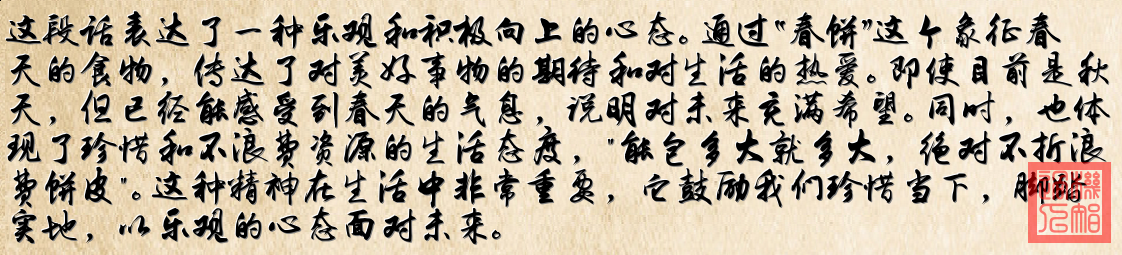 这段话表达了一种乐观和积极向上的心态。通过“春饼”这个象征春
天的食物，传达了对美好事物的期待和对生活的热爱。即使目前是秋
天，但已经能感受到春天的气息，说明对未来充满希望。同时，也体
现了珍惜和不浪费资源的生活态度，"能包多大就多大，绝对不折浪
费饼皮"。这种精神在生活中非常重要，它鼓励我们珍惜当下，脚踏
实地，以乐观的心态面对未来。